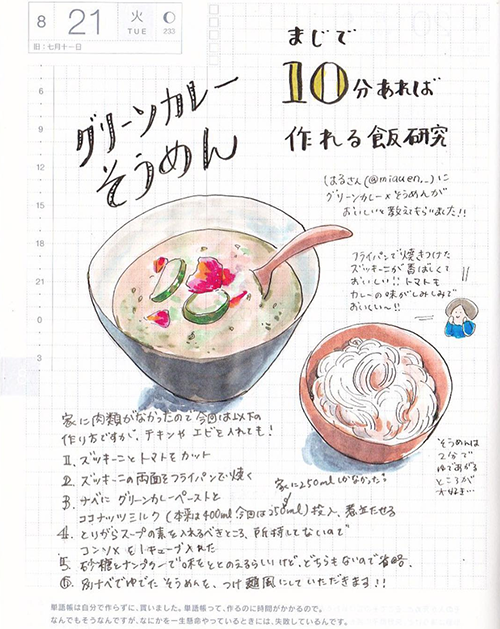 8
21
火
TUE
233
旧：七月十一日
まじで
10分あれば
作れる飯研究
グリーンカレー
そうめん
はるさん(@miquen__)に
グリーンカレー×そうめんが
おいしいと教えてもらいました!!
フライパンで焼きつけた
ズッキーニが香ばしくて
おいしい!!トマトも
カレーの味がしみしみで
おいしい〜!!
6
9
12
15
18
21
0
3
そうめんは
2分で
ゆであがる
ところが
大好き…
家に肉類がなかったので今回は以下の
作り方ですが、チキンやエビを入れても!
1. ズッキーニとトマトをカット
2. ズッキーニの両面をフライパンで焼く
家に250mlしかなかった
3. ナベにグリーンカレーペーストと
ココナッツミルク(本来は400ml今回は250ml)投入、煮立たせる
4. とりがらスープの素を入れるべきところ、所持してないので
コンソメを1キューブ入れた
5. 砂糖とナンプラーで味をととのえるらしいけど、どちらもないので省略
6. 別ナベでゆでたそうめんを、つけ麺風にしていただきます!!
単語帳は自分で作らずに、買いました。単語帳って、作るのに時間がかかるので。
なんでもそうなんですが、なにかを一生懸命やっているときには、失敗しているんです。